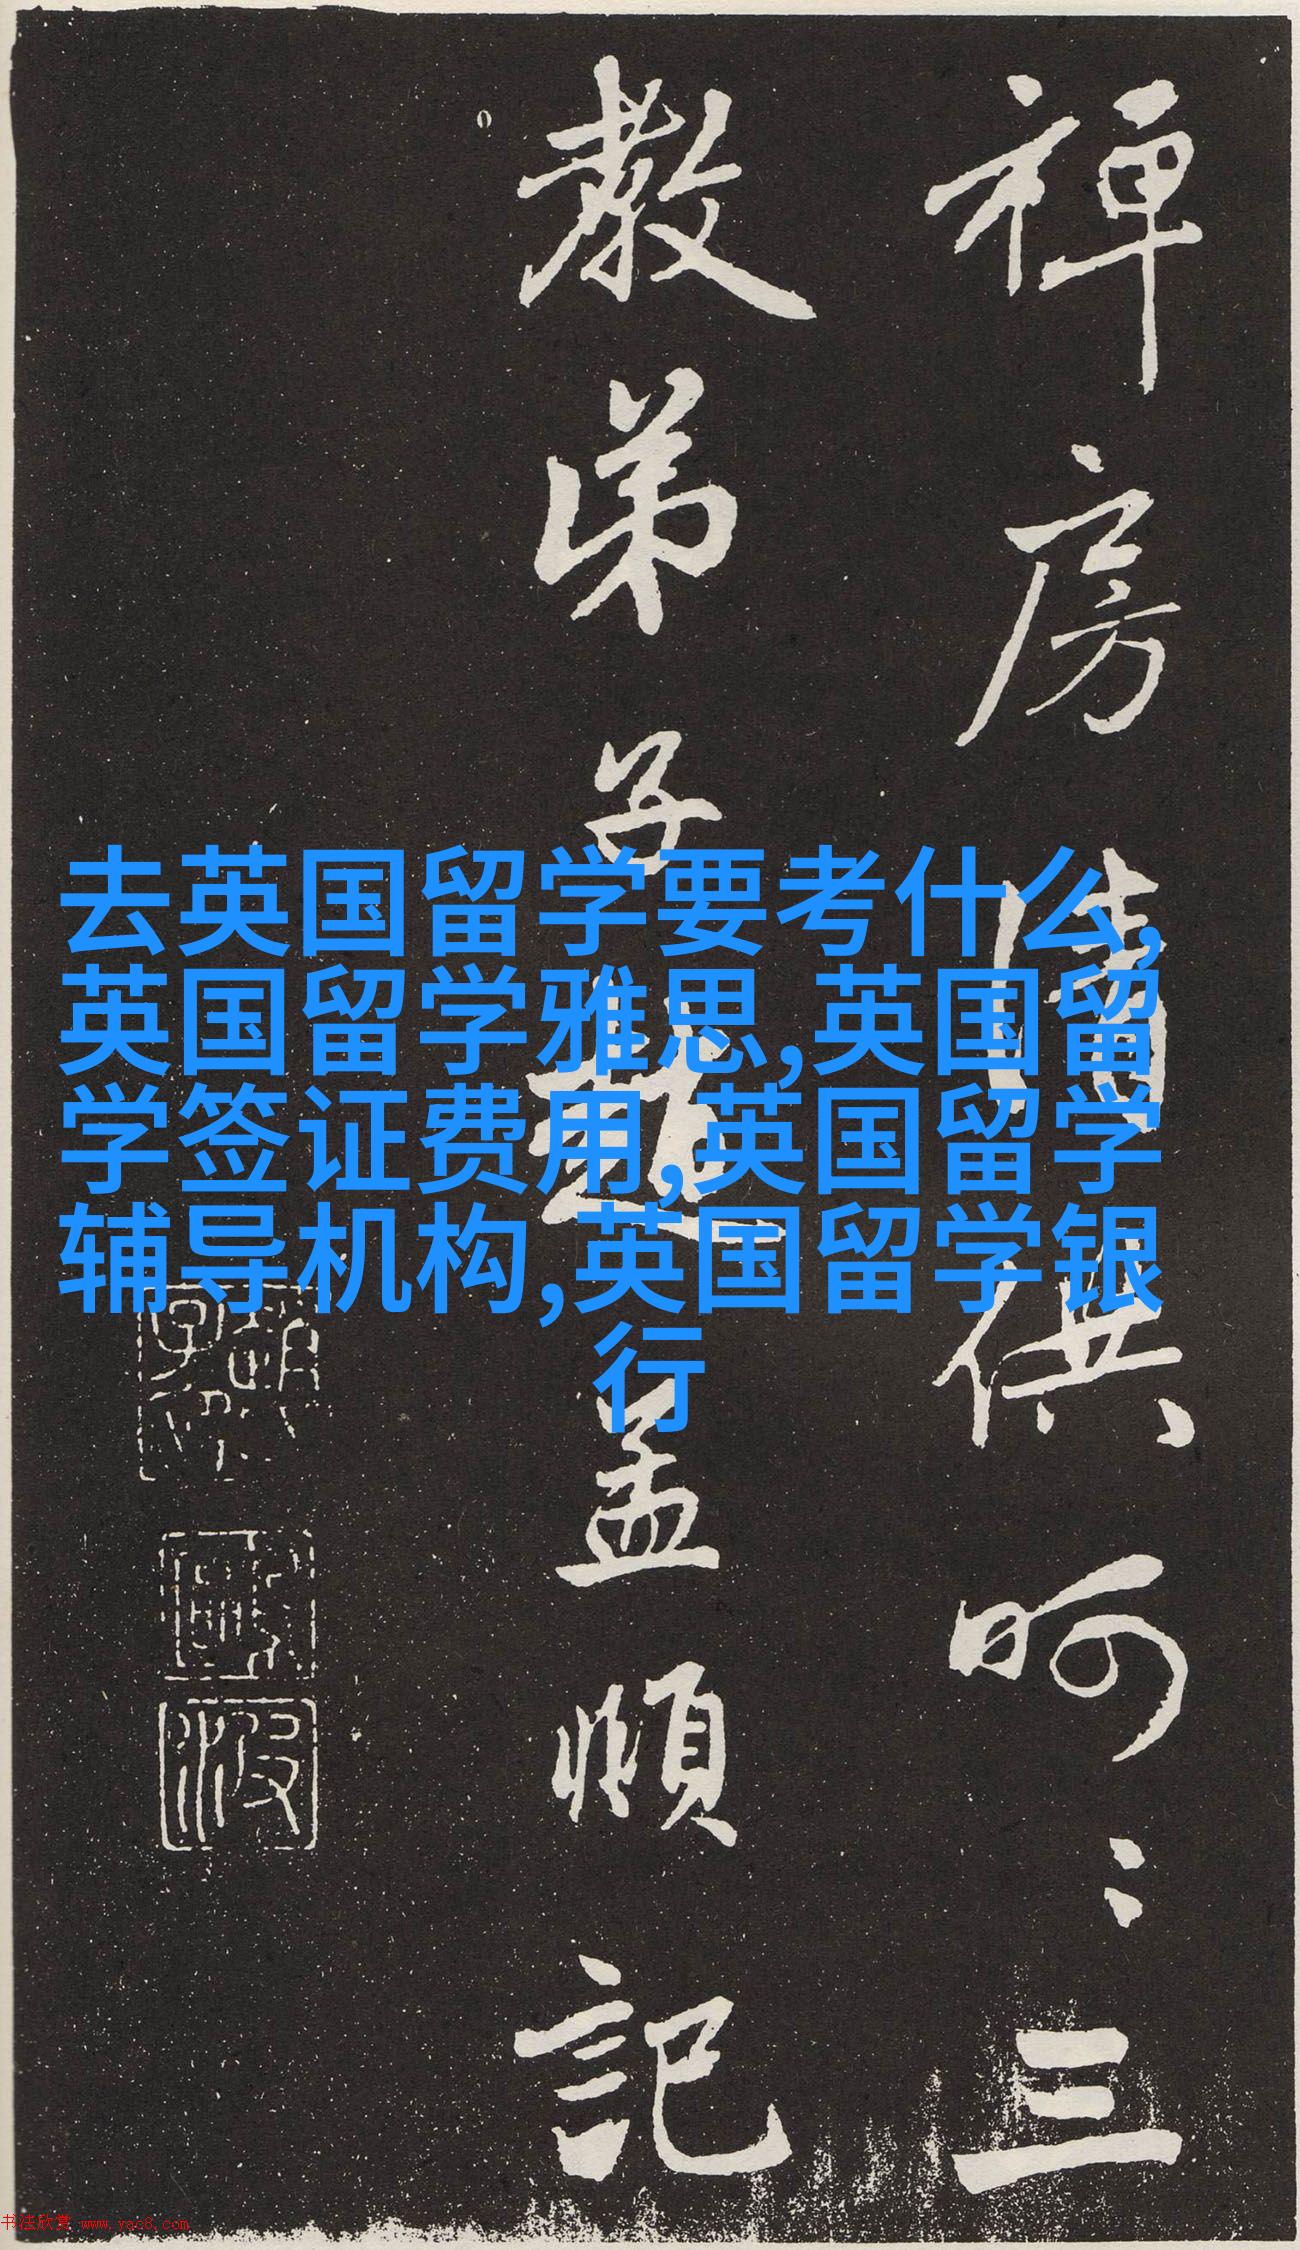 禅房清供呵〻三
教弟子趙孟頫記
去英国留学要考什么,
英国留学雅思,英国留
学签证费用,英国留学
辅导机构,英国留学银
行
书法欣赏 www.yac8.com